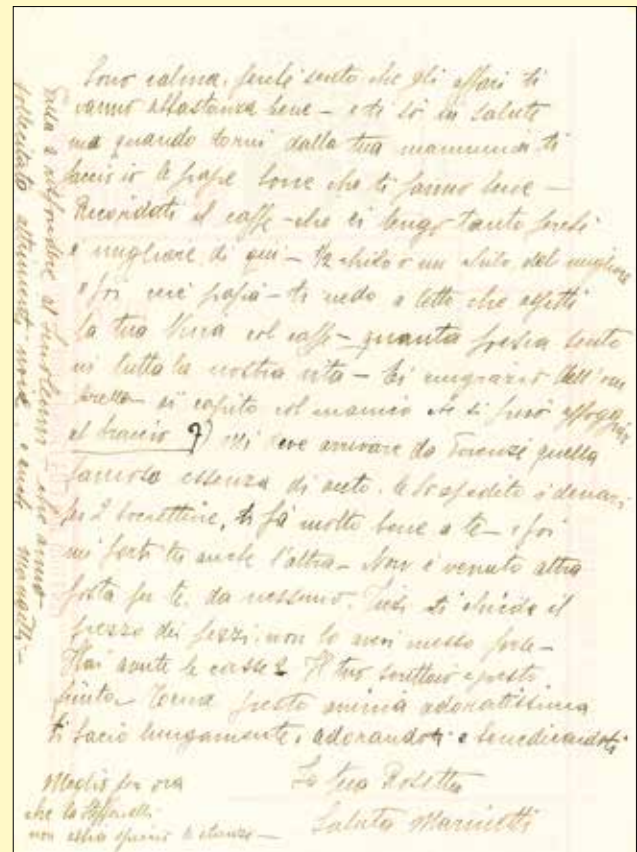 Sono calma, perchè sento che gli affari ti
vanno abbastanza bene – e ti so in salute
ma quando torni dalla tua mammina ti
faccio io le pappe buone che ti fanno bene –
Ricordati il caffè – che ci tengo tanto perchè
è migliore di qui – ½ chilo o un chilo del migliore
e poi papà – ti vedo a letto che aspetti
la tua col caffè – quanta poesia sento
in tutta la nostra vita – Ti ringrazio dell'om
brello – si capito col manico che si può
al braccio ?) Mi deve arrivare da Firenze quella
famosa essenza di aceto. Le ho spedito i denari
per 2 boccettine, ti fà molto bene a te – e poi
mi porti tu anche l'altra – Non è venuta altra
posta per te, da nessuno. ti chiede il
prezzo dei pezzi, non lo avevi messo forse –
Hai avute le casse? Il tuo scrittoio è presto
finito – Torna presto anima adoratissima
ti bacio lungamente, adorandoti e benedicendoti
La tua Rosetta
Saluta Marinetti
Meglio per ora
che la
non abbia stanze –
a rispondere al che anno
sollecitato altrimenti